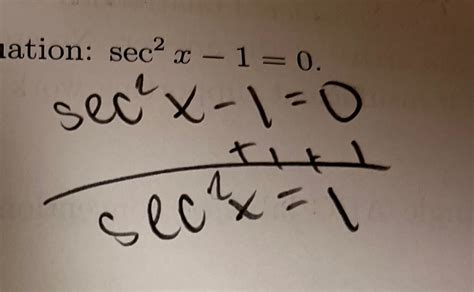 uation: sec² x − 1 = 0.
sec²x-1=0
+1 +1
sec²x=1